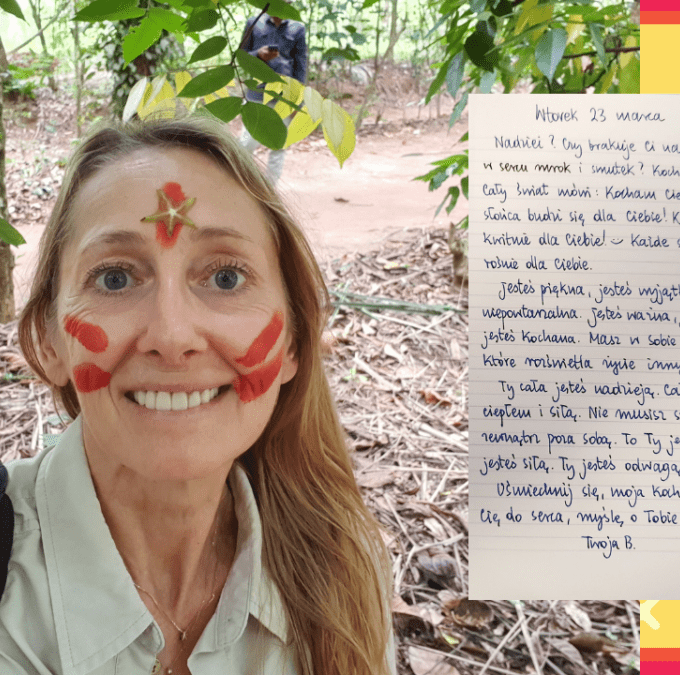 Wtorek 23 marca
Nadziei? Czy brakuje Ci na
w sercu mrok i smutek? Koch
Cały świat mówi: Kocham Cię
słońca budzi się dla Ciebie! K
Kwitnie dla Ciebie! Każde s
rośnie dla Ciebie.
Jesteś piękna, jesteś wyjąt
niepowtarzalna. Jesteś ważna,
jesteś Kochana. Masz w Sobie
które rozświetla życie inny
Ty cała jesteś nadzieją. Ca
ciepłem i siłą. Nie musisz s
zewnątrz poza sobą. To Ty je
jesteś siłą. Ty jesteś odwagą
Uśmiechnij się, moja Koch
Cię do serca, myślę o Tobie
Twoja B.